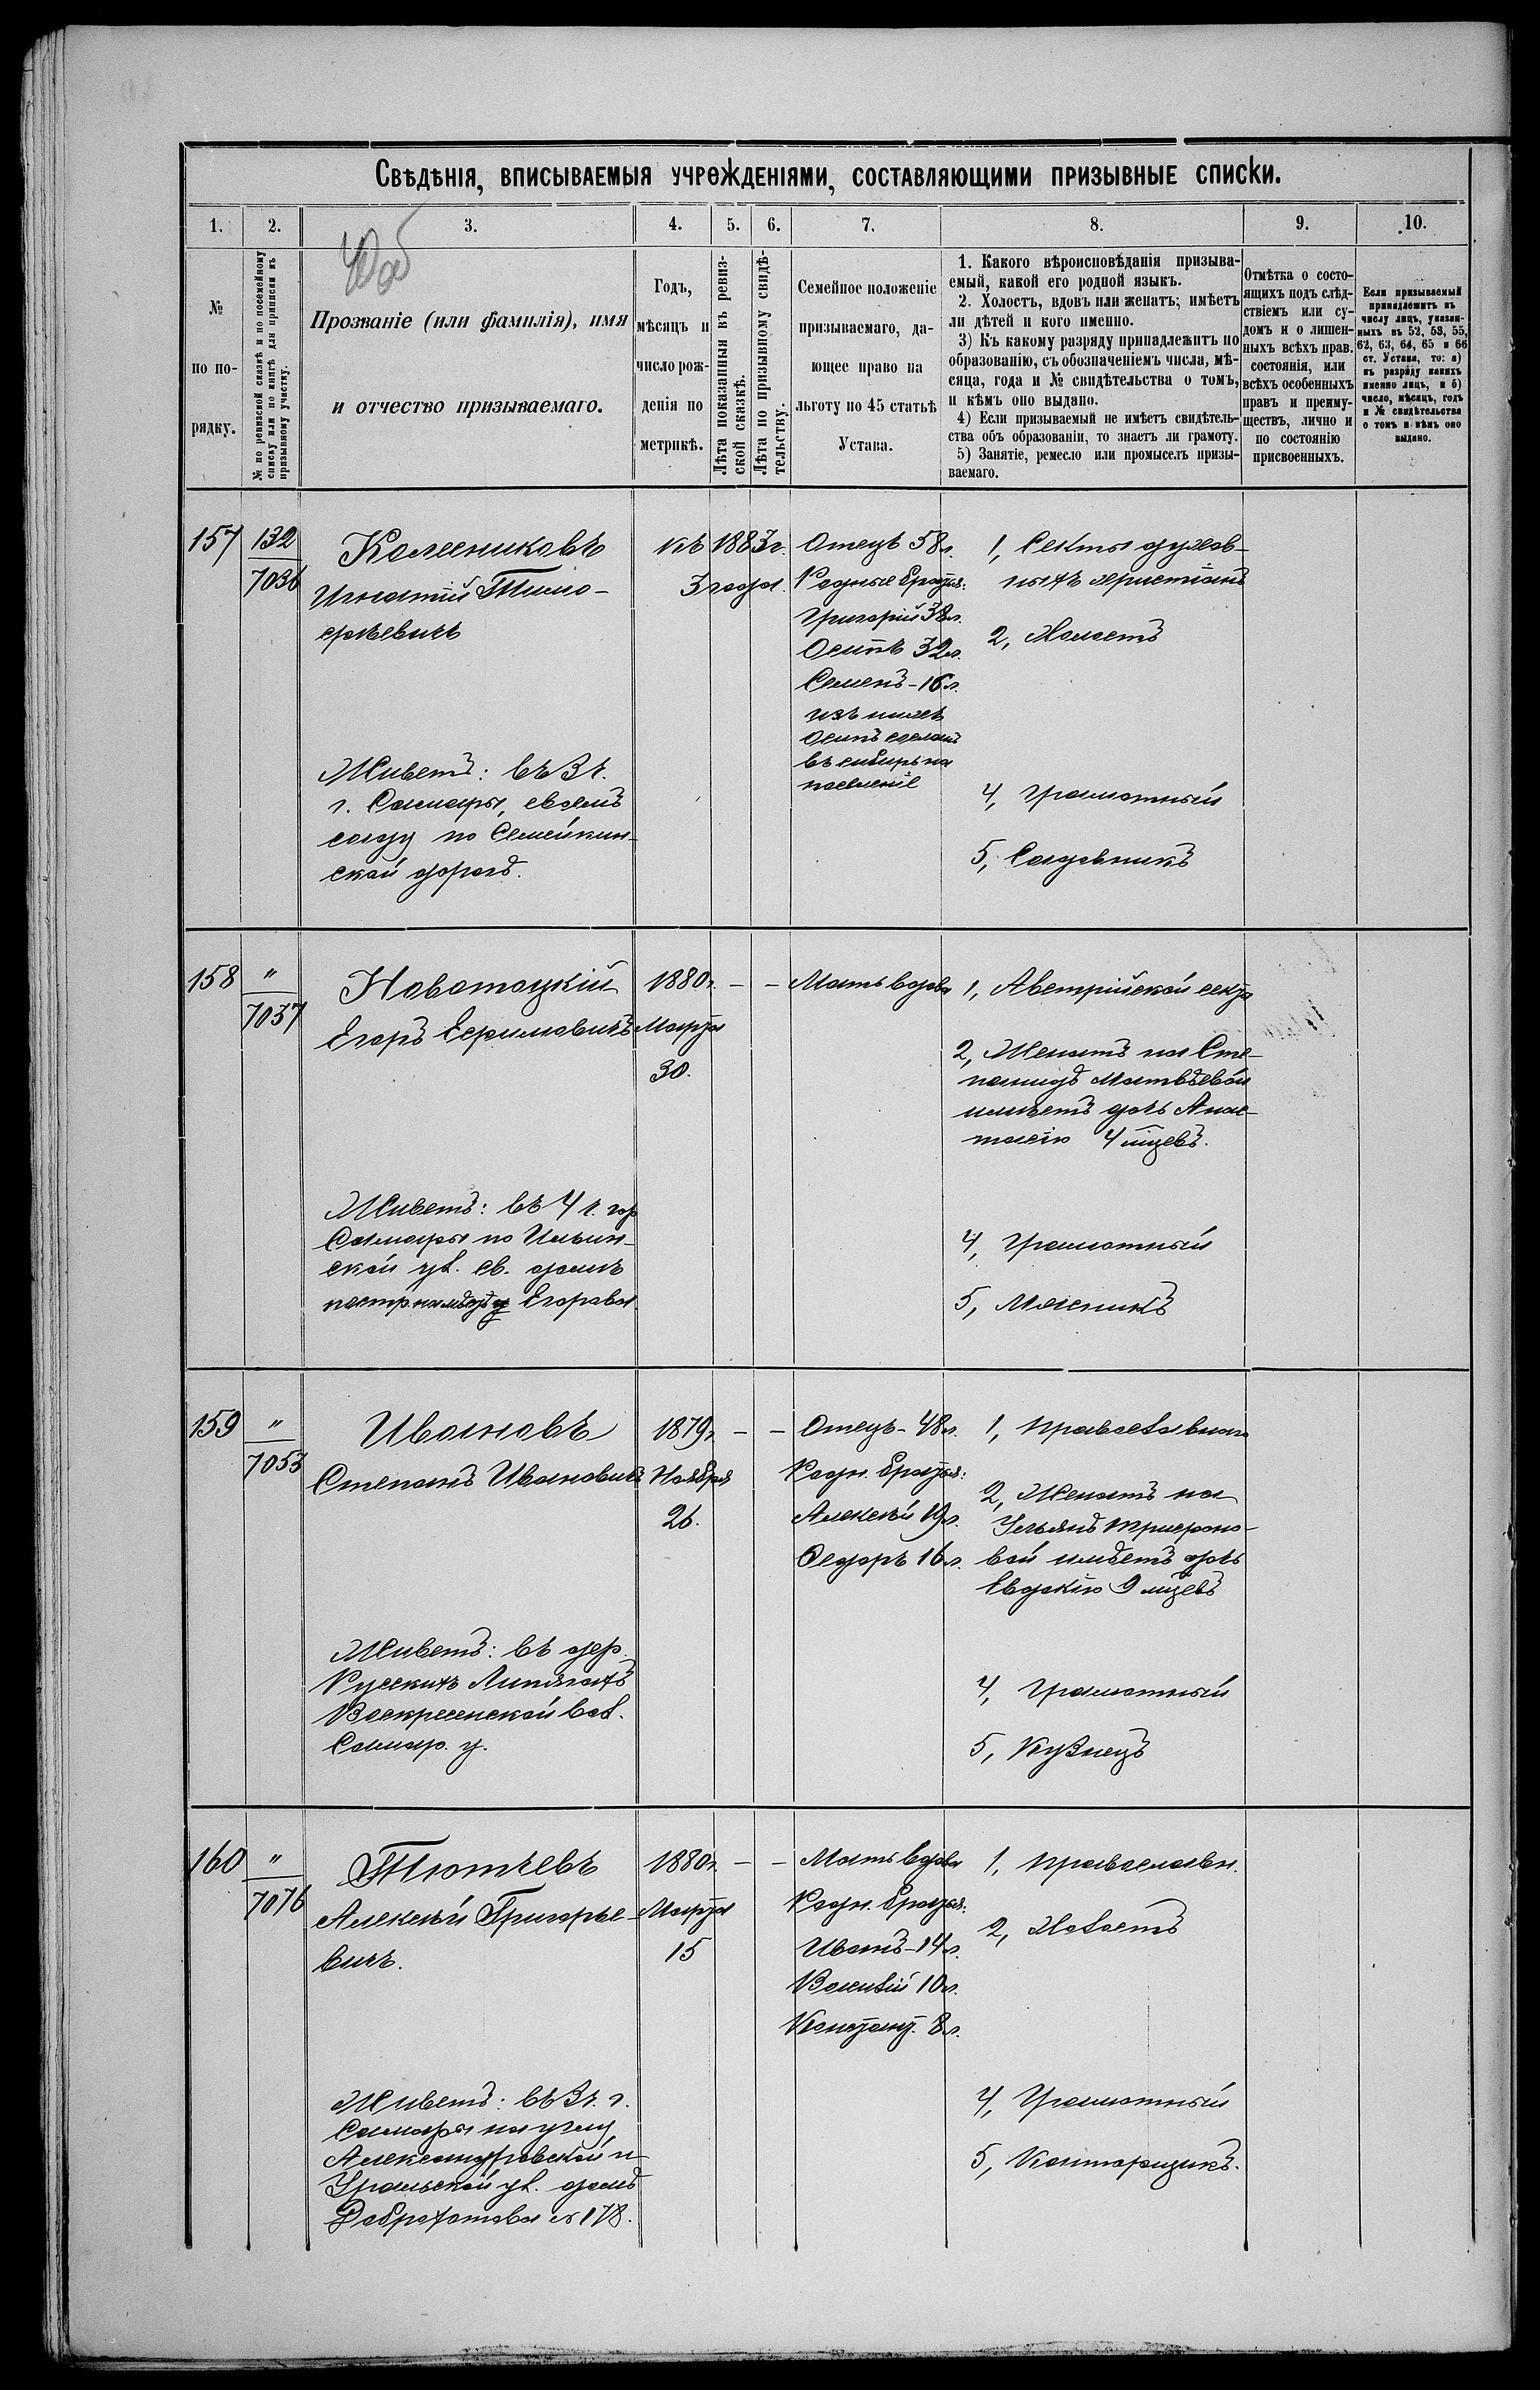 Свѣдѣнія, вписываемыя учрежденіями, составляющими призывные списки.
1. 2. 3. 4. 5. 6. 7. 8. 9. 10.
№
по по-
рядку.
№ по ревизской сказкѣ и по посемейному
списку или по книгѣ для приписки къ
призывному участку.
Прозваніе (или фамилія), имя
и отчество призываемаго.
Годъ,
мѣсяцъ и
число рож-
денія по
метрикѣ.
Лѣта показанныя въ ревиз-
ской сказкѣ.
Лѣта по призывному свидѣ-
тельству.
Семейное положеніе
призываемаго, да-
ющее право на
льготу по 45 статьѣ
Устава.
1. Какого вѣроисповѣданія призыва-
емый, какой его родной языкъ.
2. Холостъ, вдовъ или женатъ; имѣетъ
ли дѣтей и кого именно.
3) Къ какому разряду принадлежитъ по
образованію, съ обозначеніемъ числа, мѣ-
сяца, года и № свидѣтельства о томъ,
и кѣмъ оно выдано.
4) Если призываемый не имѣетъ свидѣтель-
ства объ образованіи, то знаетъ ли грамоту.
5) Занятіе, ремесло или промыселъ призы-
ваемаго.
Отмѣтка о состо-
ящихъ подъ слѣд-
ствіемъ или су-
домъ и о лишен-
ныхъ всѣхъ прав.
состоянія, или
всѣхъ особенныхъ
правъ и преиму-
ществъ, лично и
по состоянію
присвоенныхъ.
Если призываемый
принадлежитъ къ
числу лицъ, указан-
ныхъ въ 52, 53, 55,
62, 63, 64, 65 и 66
ст. Устава, то: а)
къ разряду какихъ
именно лицъ, и б)
число, мѣсяцъ, годъ
и № свидѣтельства
о томъ и кѣмъ оно
выдано.
157
132
7036
Колесниковъ
Игнатій Тимо-
феевичъ
Живетъ: въ 3 ч.
г. Самары, своемъ
саду по Семейкин-
ской дорогѣ.
къ 1883 г.
3 года.
Отецъ 58 л.
Родные братья:
Григорій 38 л.
Осипъ 32 л.
Семенъ - 16 л.
изъ нихъ
Осипъ сосланъ
въ сибирь на
поселеніе
1, Секты духов-
ныхъ христіанъ
2, Холостъ
4, Грамотный
5, Садовникъ
158
"
7037
Новотоцкій
Егоръ Ефимовичъ
Живетъ: въ 4 ч. гор
Самары по Ильин-
ской ул. св. домѣ
Егорова
1880 г.
Марта
30.
- -
Мать вдова
1, Австрійской секты
2, Женатъ на Сте-
панидѣ Матвѣевой
имѣетъ дочь Анас-
тасію 4 мѣсцевъ.
4, Грамотный
5, Мясникъ
159
"
7053
Ивановъ
Степанъ Ивановичъ
Живетъ: въ дер.
Русскихъ Липягахъ
Воскресенской вол.
Самар. у.
1879 г.
Ноября
26.
- -
Отецъ - 48 л.
Родн. братья:
Алексѣй 19 л.
Федоръ 16 л.
1, Православнаго
2, Женатъ на
Ульянѣ Трифоно-
вой имѣетъ дочь
Евдокію 9 мѣсцевъ
4, Грамотный
5, Кузнецъ
160
"
7076
Тютчевъ
Алексѣй Григорье-
вичъ.
Живетъ: въ 3 ч. г.
Самары на углу
Александровской и
Уральской ул. домѣ
Доброхотова № 178.
1880 г.
Марта
15
- -
Мать вдова
Родн. братья:
Иванъ - 14 л.
Василій 10 л.
Констант. 8 л.
1, Православн.
2, Холостъ
4, Грамотный
5, Конторщикъ.